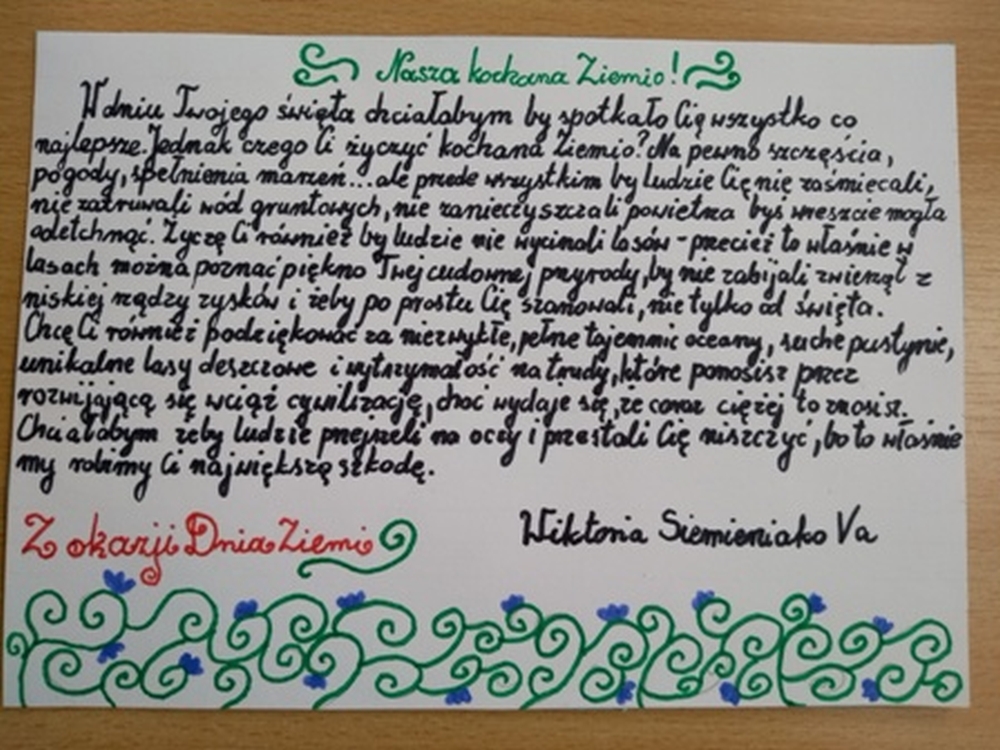 Nasza kochana Ziemio!
W dniu Twojego święta chciałabym by spotkało Cię wszystko co
najlepsze. Jednak czego Ci życzyć kochana Ziemio? Na pewno szczęścia,
pogody, spełnienia marzeń...ale przede wszystkim by ludzie Cię nie zaśmiecali,
nie zatruwali wód gruntowych, nie zanieczyszczali powietrza byś wreszcie mogła
odetchnąć. Życzę Ci również by ludzie nie wycinali lasów - przecież to właśnie w
lasach można poznać piękno Twej cudownej przyrody, by nie zabijali zwierząt z
niskiej rządzy zysków i żeby po prostu Cię szanowali, nie tylko od święta.
Chcę Ci również podziękować za niezwykłe, pełne tajemnic oceany, suche pustynie,
unikalne lasy deszczowe i wytrzymałość na trudy, które ponosisz przez
rozwijającą się wciąż cywilizację, choć wydaje się, że coraz ciężej to znosisz.
Chciałabym żeby ludzie przejrzeli na oczy i przestali Cię niszczyć, bo to właśnie
my robimy Ci największą szkodę.
Z okazji Dnia Ziemi
Wiktoria Siemieniako Va